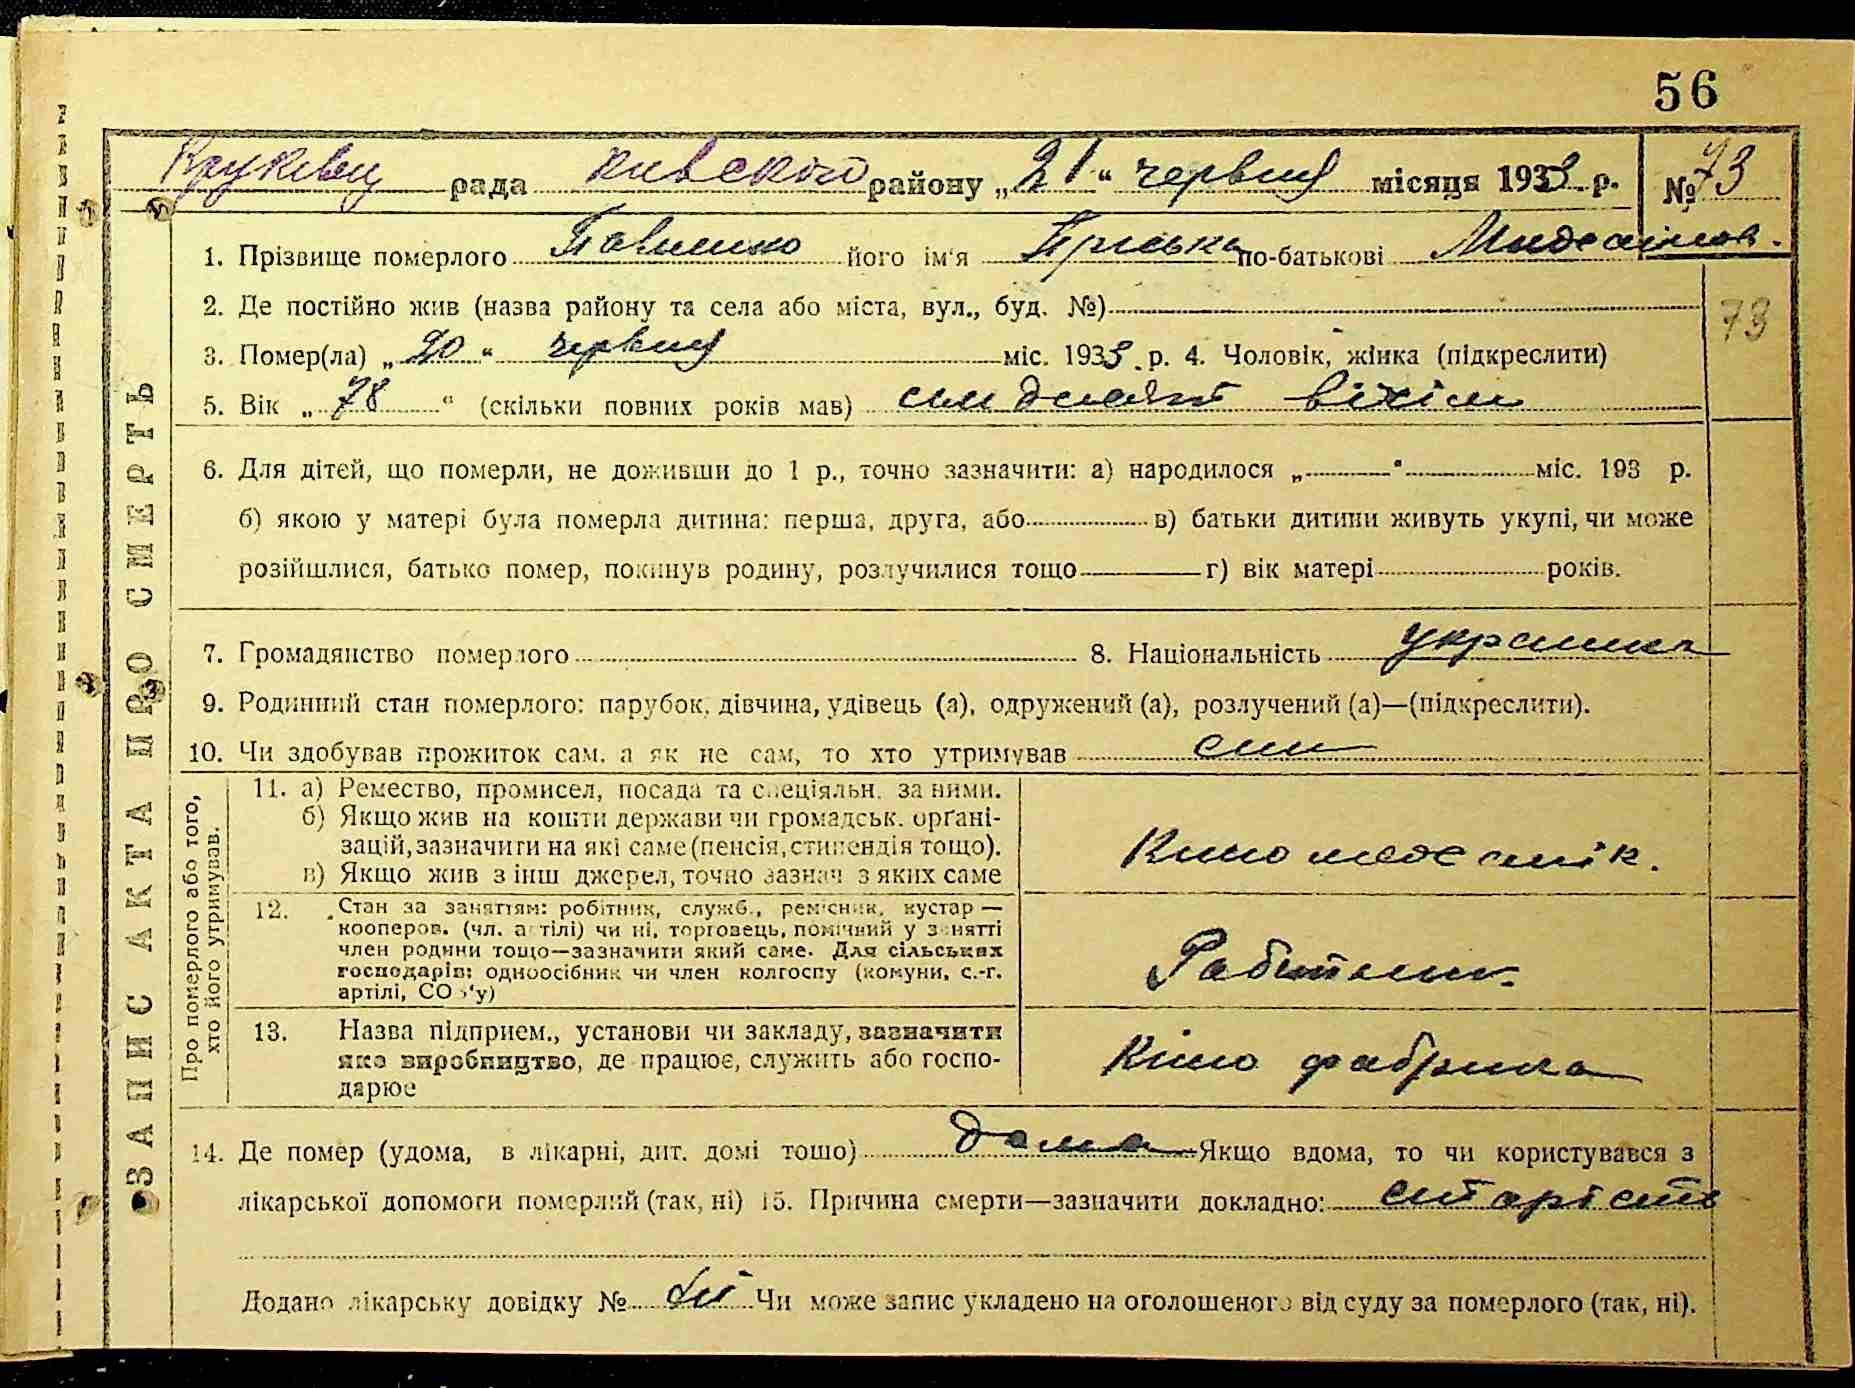 56
Круківщ рада київского району „21“ червня місяця 1933 р. № 73
1. Прізвище померлого його ім'я Пріська по-батькові
73
2. Де постійно жив (назва району та села або міста, вул., буд. №)
3. Помер(ла) „20“ червня міс. 1933 р. 4. Чоловік, жінка (підкреслити)
5. Вік „78“ (скільки повних років мав) сімдесят вісім
6. Для дітей, що померли, не доживши до 1 р., точно зазначити: а) народилося „ “ міс. 193 р.
б) якою у матері була померла дитина: перша, друга, або в) батьки дитини живуть укупі, чи може
розійшлися, батько помер, покинув родину, розлучилися тощо г) вік матері років.
7. Громадянство померлого 8. Національність украинка
9. Родинний стан померлого: парубок, дівчина, удівець (а), одружений (а), розлучений (а)—(підкреслити).
10. Чи здобував прожиток сам, а як не сам, то хто утримував син
ЗАПИС АКТА ПРО СМЕРТЬ
Про померлого або того,
хто його утримував.
11. а) Ремество, промисел, посада та спеціяльн. за ними.
б) Якщо жив на кошти держави чи громадськ. орґані-
зацій, зазначити на які саме (пенсія, стипендія тощо).
в) Якщо жив з інш джерел, точно зазнач з яких саме
12. Стан за заняттям: робітник, служб., ремісник, кустар —
кооперов. (чл. артілі) чи ні, торговець, помічний у занятті
член родини тощо—зазначити який саме. Для сільських
господарів: одноосібник чи член колгоспу (комуни, с.-г.
артілі, СОЗ'у)
Работник.
13. Назва підприєм., установи чи закладу, зазначити
яке виробництво, де працює, служить або госпо-
дарює
Кіно фабрика
14. Де помер (удома, в лікарні, дит. домі тощо) дома Якщо вдома, то чи користувався з
лікарської допомоги померлий (так, ні) 15. Причина смерти—зазначити докладно: старість
Додано лікарську довідку № Чи може запис укладено на оголошеного від суду за померлого (так, ні).